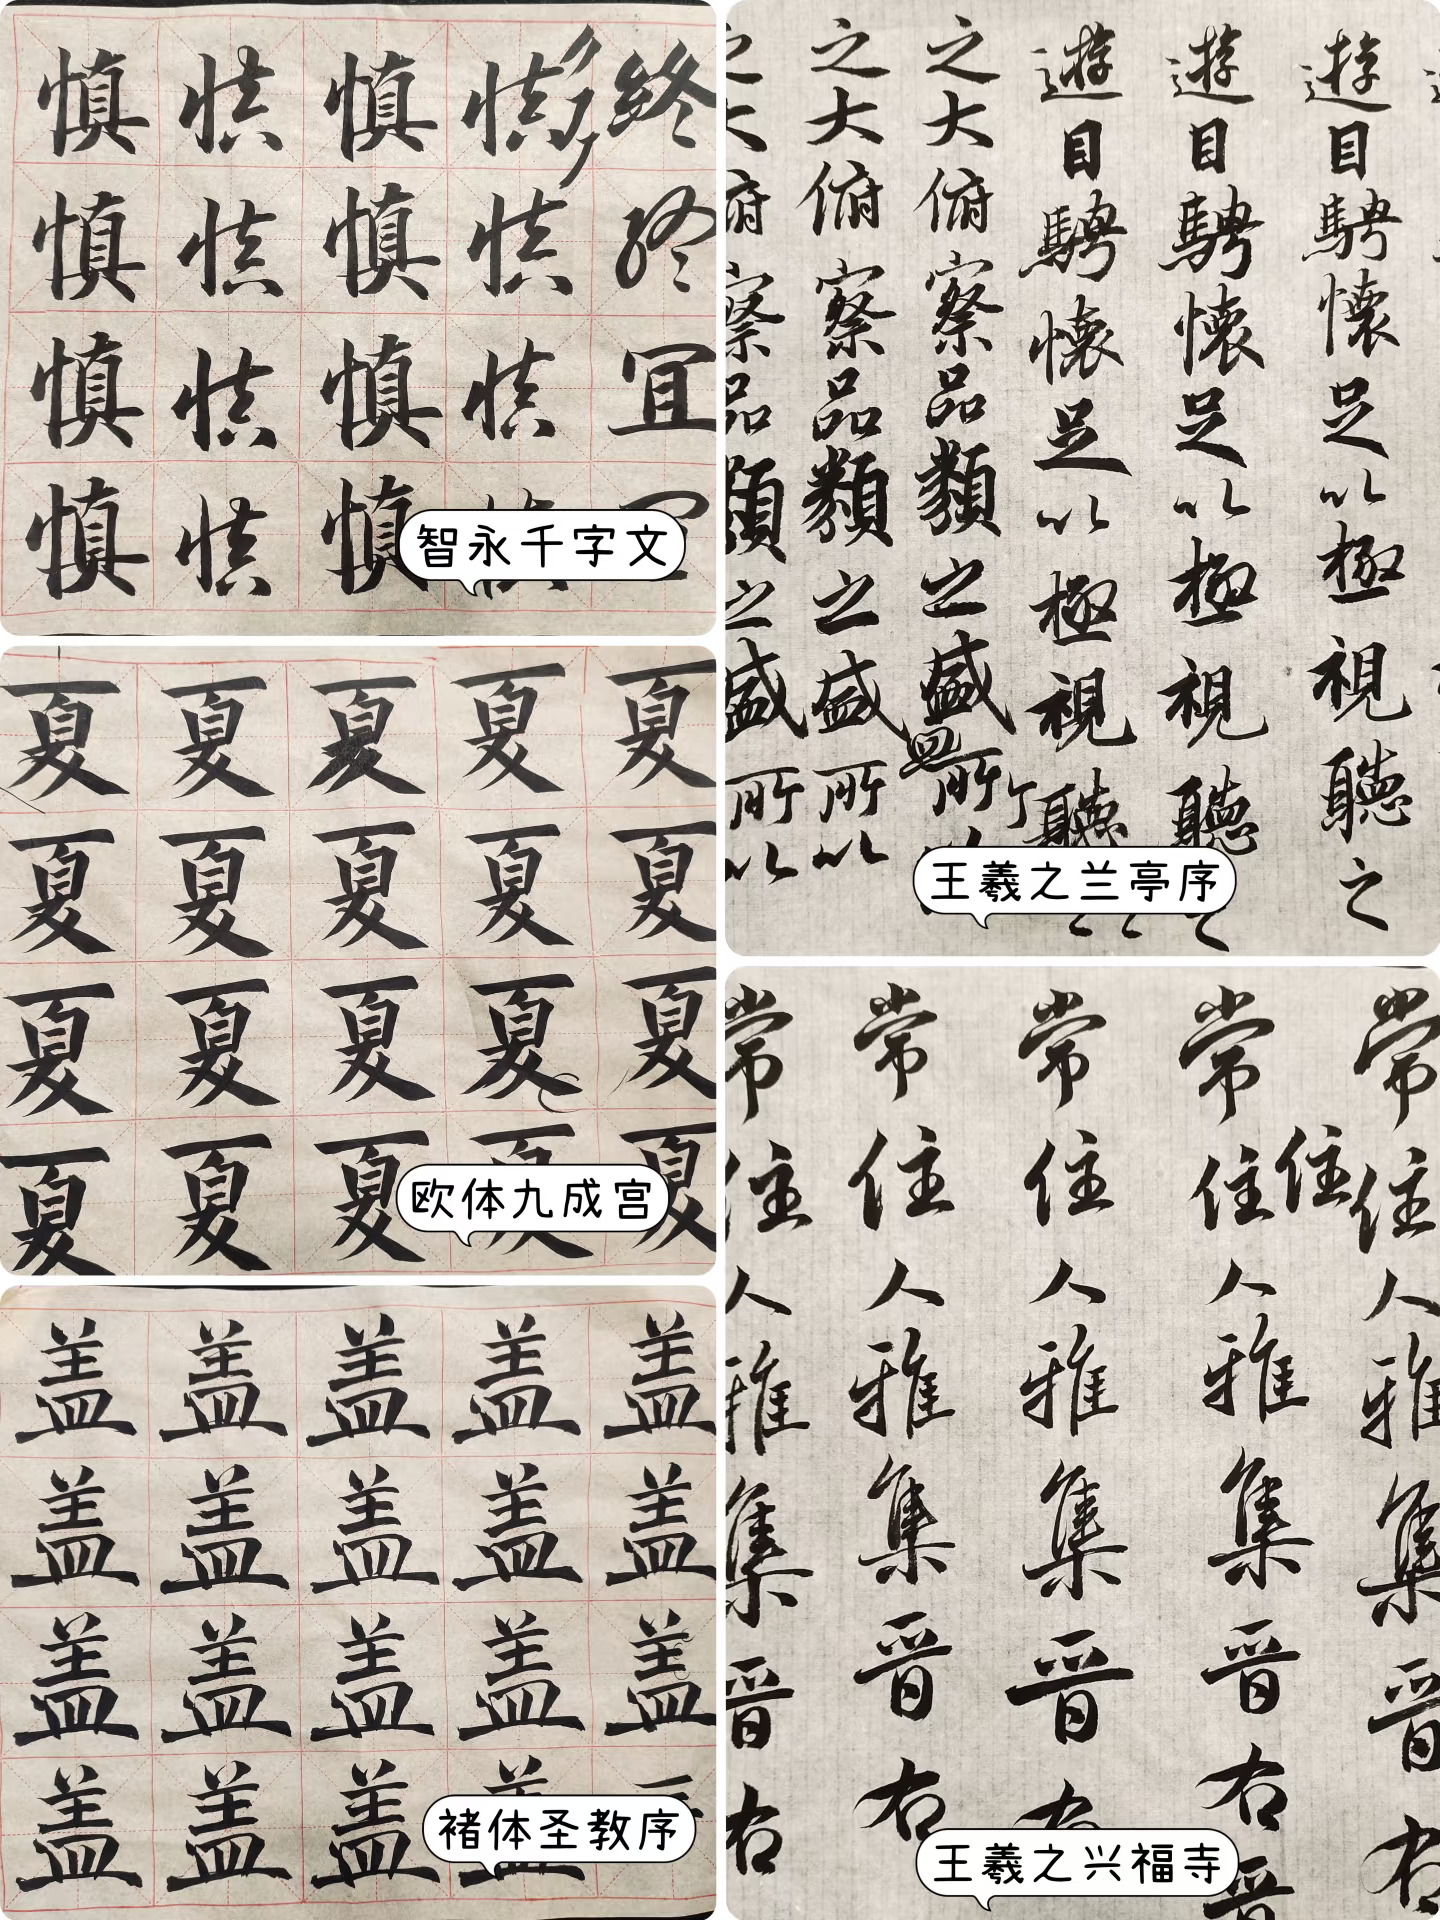 慎慎慎慎終
慎慎慎慎終
慎慎慎慎宜
慎慎慎
智永千字文
夏夏夏夏夏
夏夏夏夏夏
夏夏夏夏夏
夏夏夏夏夏
欧体九成宫
盖盖盖盖盖
盖盖盖盖盖
盖盖盖盖盖
盖盖盖盖
褚体圣教序
遊目騁懷足以極視聽之
遊目騁懷足以極視聽
遊目騁懷足以極視聽
之大俯察品類之盛所
之大俯察品類之盛所以
之大俯察品類之盛所以
王羲之兰亭序
常住人雅集晉右
常住住人雅集晉右晉
常住人雅集晉右
常住人雅集晉右
常住人雅集晉右
王羲之兴福寺